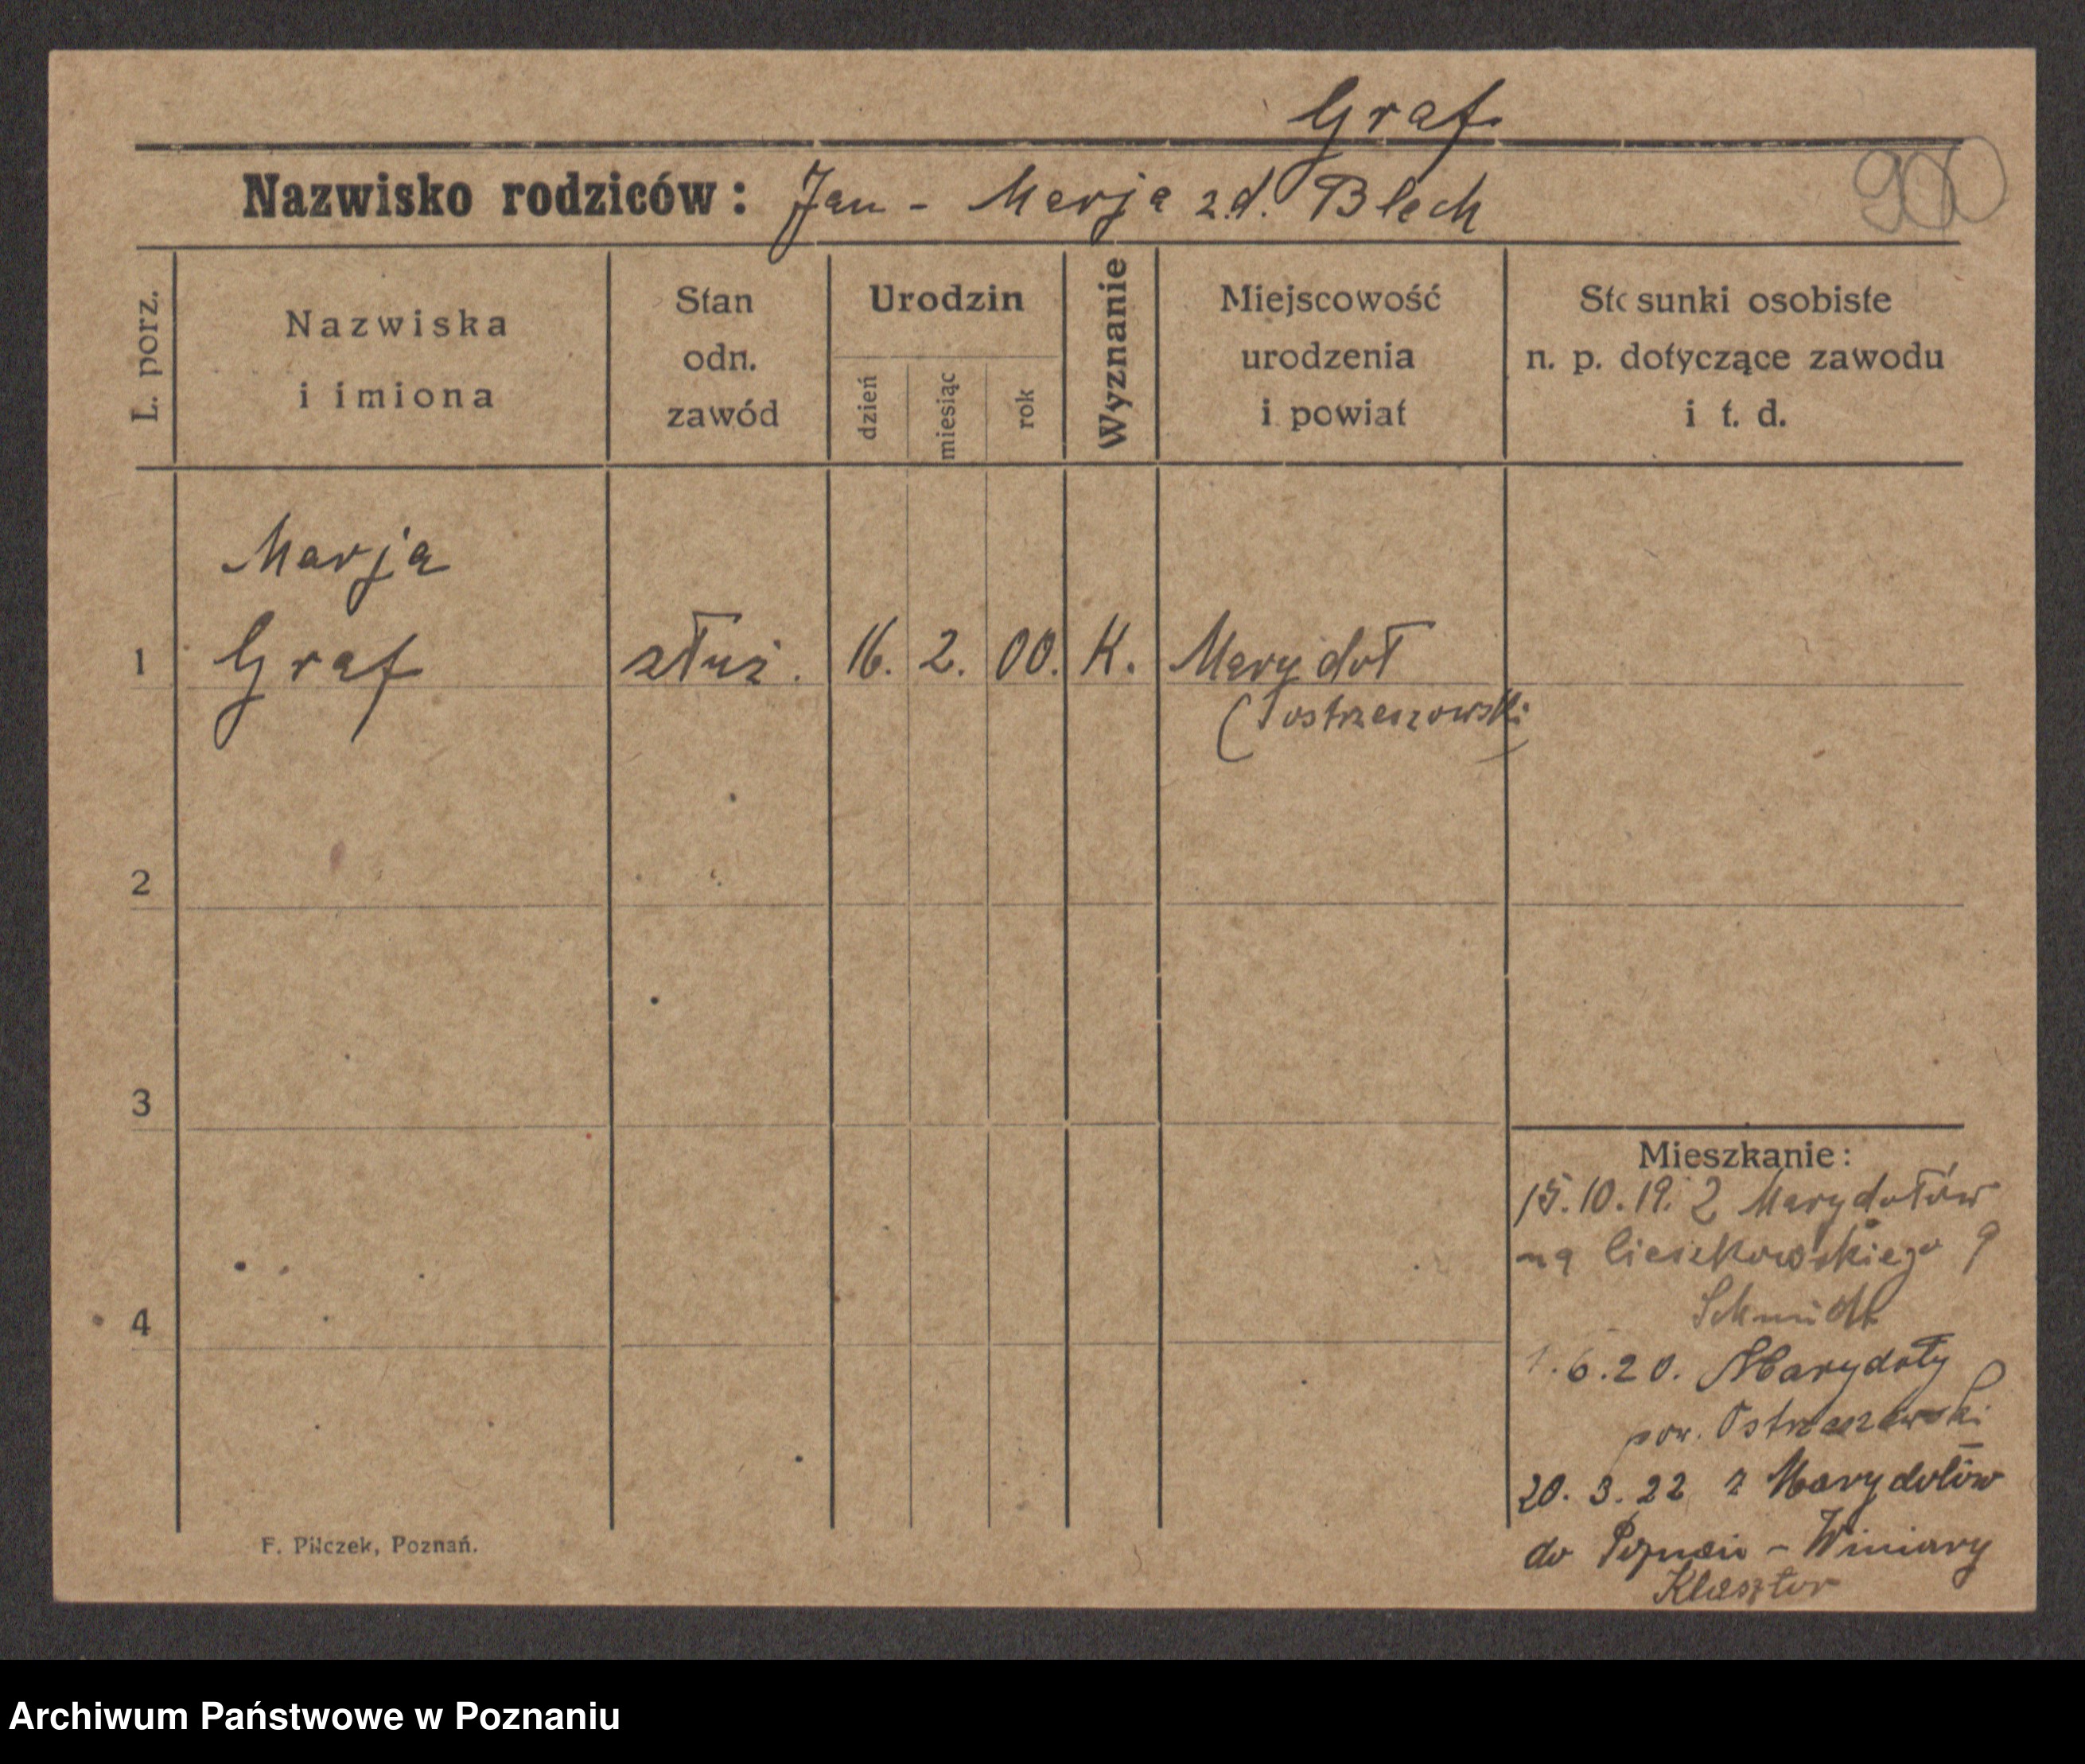 Graf
Nazwisko rodziców: Jan - Marja z.d. Blech
900
L. porz.
Nazwiska
i imiona
Stan
odn.
zawód
Urodzin
dzień
miesiąc
rok
Wyznanie
Miejscowość
urodzenia
i powiat
Stosunki osobiste
n. p. dotyczące zawodu
i t. d.
Marja
1 Graf służ. 16. 2. 00. K. Marydoł
ostrzeszowski)
2
3
Mieszkanie:
15.10.19. Z Marydołów
na Cieszkowskiego 9
Schmidt
4
1.6.20. Marydoły
pow. Ostrzeszowski
20.3.22 z Marydołów
do Poznań - Winiary
Klasztor
F. Pilczek, Poznań.
Archiwum Państwowe w Poznaniu